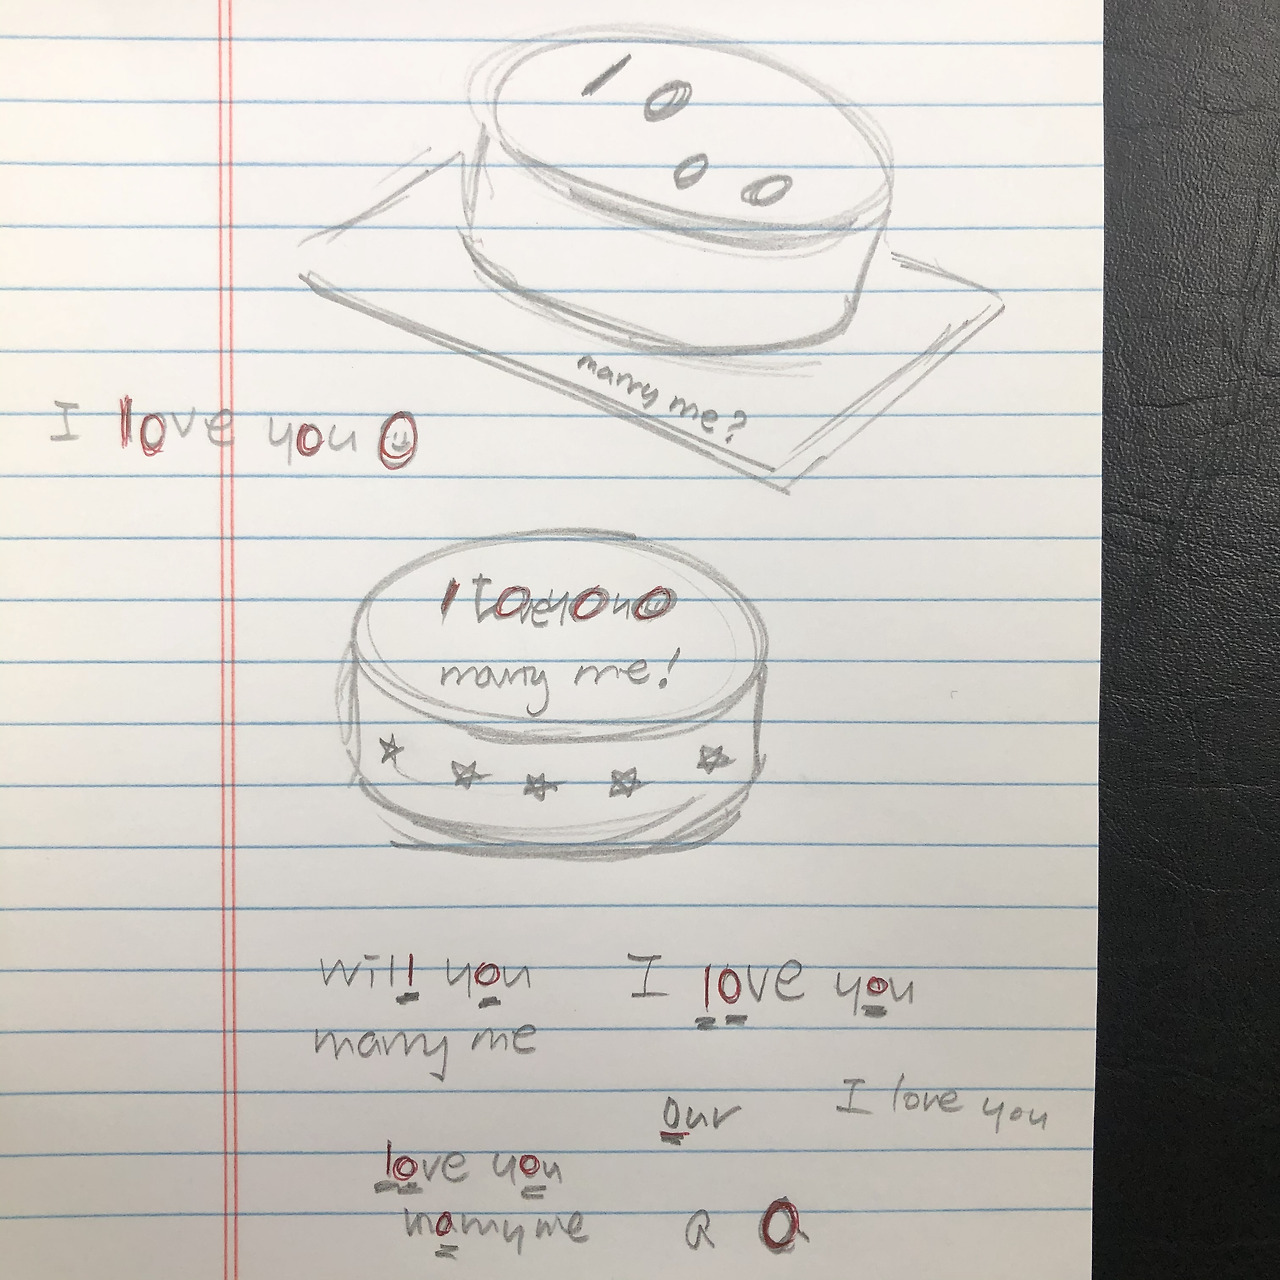 1 0
0 0
marry me?
I love you
I love you
marry me!
will you
marry me
I love you
our
I love you
love you
marry me
a a